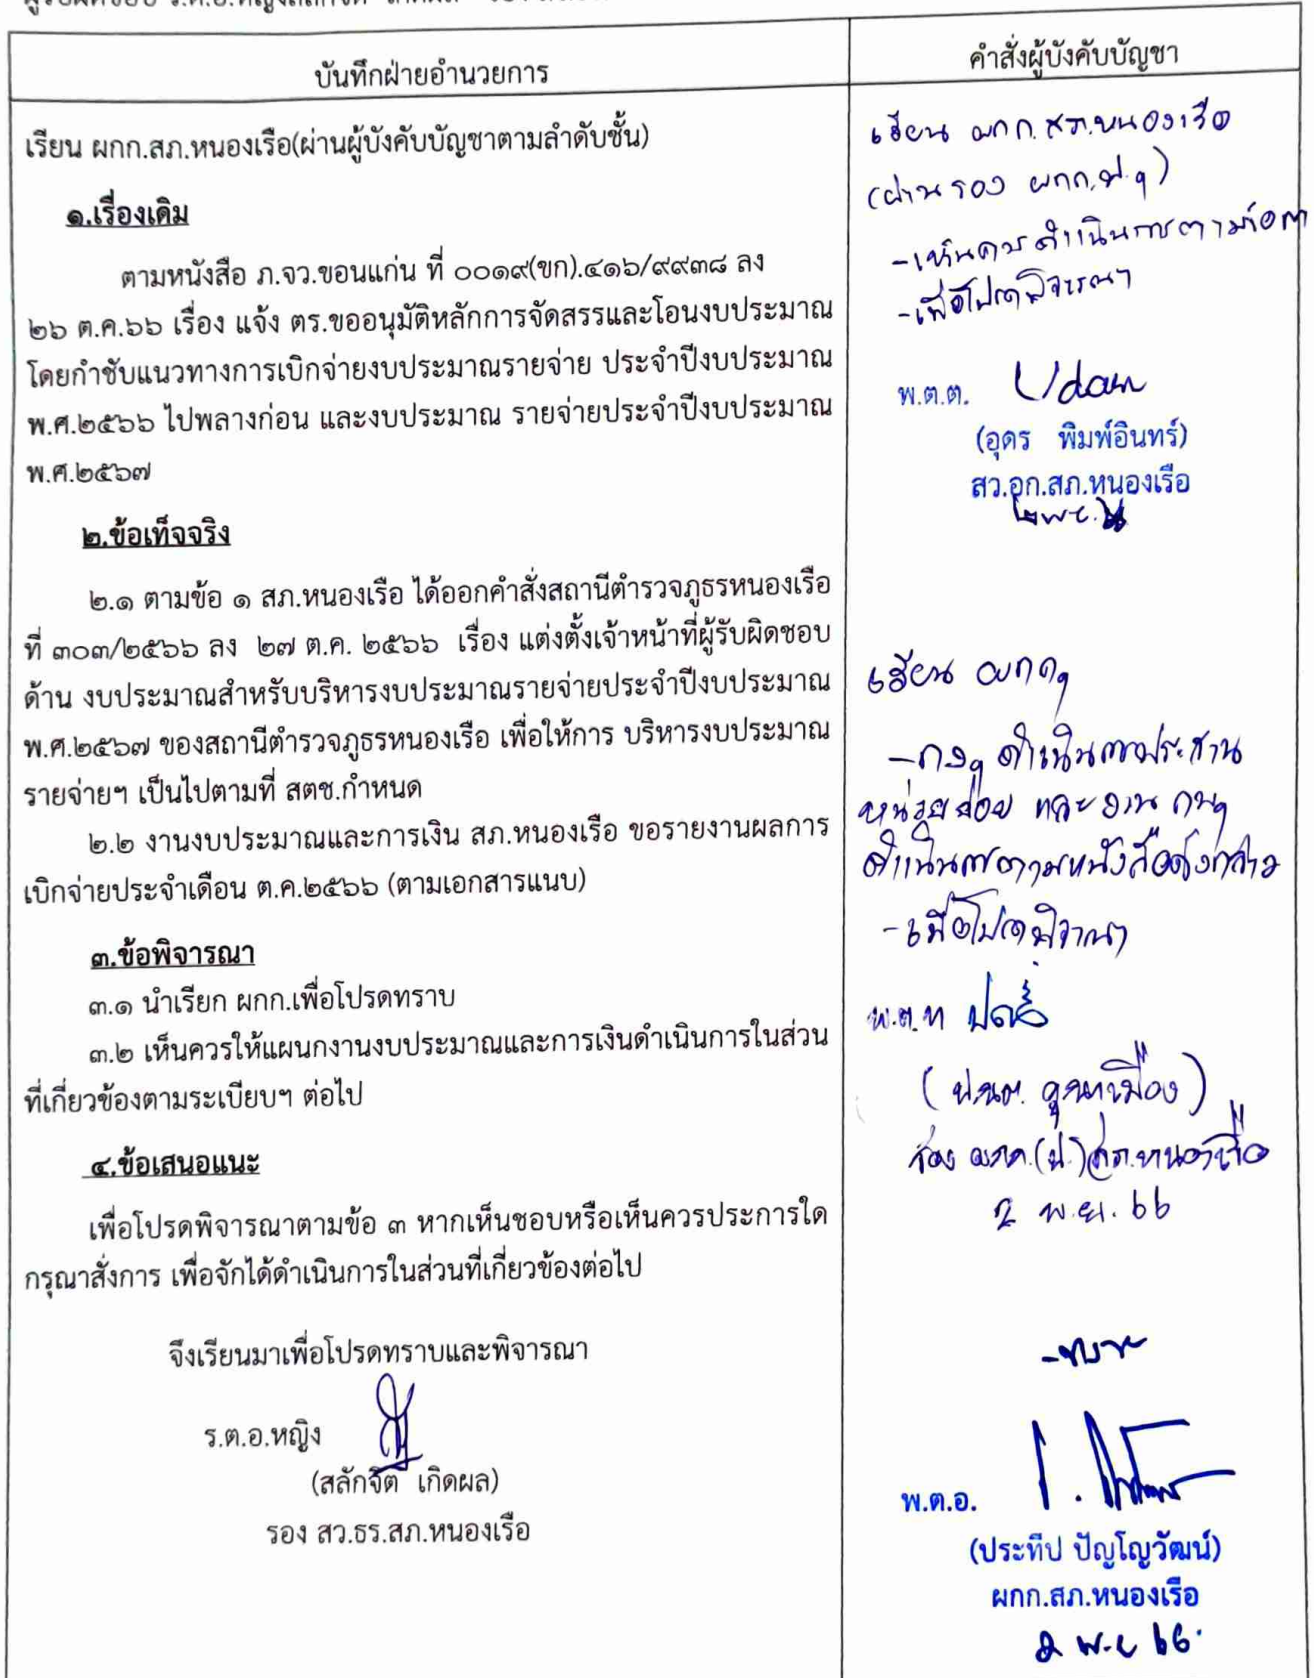 บันทึกฝ่ายอำนวยการ
เรียน ผกก.สภ.หนองเรือ(ผ่านผู้บังคับบัญชาตามลำดับชั้น)
๑.เรื่องเดิม
ตามหนังสือ ภ.จว.ขอนแก่น ที่ ๐๐๑๙(ขก).๔๑๖/๙๙๓๘ ลง
๒๖ ต.ค.๖๖ เรื่อง แจ้ง ตร.ขออนุมัติหลักการจัดสรรและโอนงบประมาณ
โดยกำชับแนวทางการเบิกจ่ายงบประมาณรายจ่าย ประจำปีงบประมาณ
พ.ศ.๒๕๖๖ ไปพลางก่อน และงบประมาณ รายจ่ายประจำปีงบประมาณ
พ.ศ.๒๕๖๗
๒.ข้อเท็จจริง
๒.๑ ตามข้อ ๑ สภ.หนองเรือ ได้ออกคำสั่งสถานีตำรวจภูธรหนองเรือ
ที่ ๓๐๓/๒๕๖๖ ลง ๒๗ ต.ค. ๒๕๖๖ เรื่อง แต่งตั้งเจ้าหน้าที่ผู้รับผิดชอบ
ด้าน งบประมาณสำหรับบริหารงบประมาณรายจ่ายประจำปีงบประมาณ
พ.ศ.๒๕๖๗ ของสถานีตำรวจภูธรหนองเรือ เพื่อให้การ บริหารงบประมาณ
รายจ่ายฯ เป็นไปตามที่ สตช.กำหนด
๒.๒ งานงบประมาณและการเงิน สภ.หนองเรือ ขอรายงานผลการ
เบิกจ่ายประจำเดือน ต.ค.๒๕๖๖ (ตามเอกสารแนบ)
๓.ข้อพิจารณา
๓.๑ นำเรียก ผกก.เพื่อโปรดทราบ
๓.๒ เห็นควรให้แผนกงานงบประมาณและการเงินดำเนินการในส่วน
ที่เกี่ยวข้องตามระเบียบฯ ต่อไป
๔.ข้อเสนอแนะ
เพื่อโปรดพิจารณาตามข้อ ๓ หากเห็นชอบหรือเห็นควรประการใด
กรุณาสั่งการ เพื่อจักได้ดำเนินการในส่วนที่เกี่ยวข้องต่อไป
จึงเรียนมาเพื่อโปรดทราบและพิจารณา
ร.ต.อ.หญิง
(สลักจิต เกิดผล)
รอง สว.ธร.สภ.หนองเรือ
คำสั่งผู้บังคับบัญชา
เรียน ผกก.สภ.หนองเรือ
(ผ่าน รอง ผกก.ป.ฯ)
-เห็นควรดำเนินการตามข้อ ๓
-เพื่อโปรดพิจารณา
พ.ต.ต.
(อุดร พิมพ์อินทร์)
สว.อก.สภ.หนองเรือ
๒ พ.ย.
เรียน ผกกฯ
ดำเนินการประสาน
หน่วยย่อย และงาน
ดำเนินการตามหนังสือดังกล่าว
-เพื่อโปรดพิจารณา
พ.ต.ท
รอง ผกก.(ป.)สภ.หนองเรือ
๒ พ.ย. ๖๖
-ทราบ
พ.ต.อ.
(ประทีป ปัญโญวัฒน์)
ผกก.สภ.หนองเรือ
๒ พ.ย ๖๖.